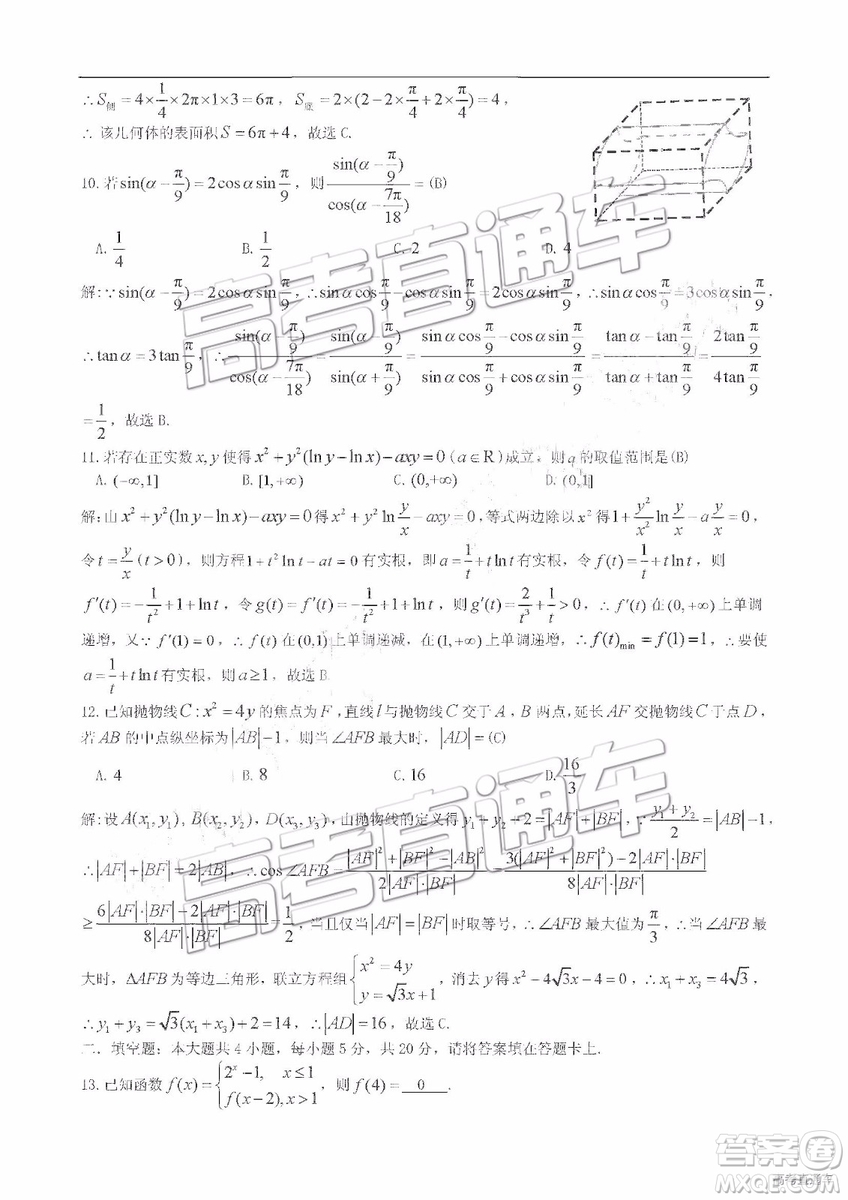 ∴S侧=4×1/4×2π×1×3=6π，S底=2×(2-2×π/4+2×π/4)=4，
∴ 该几何体的表面积S=6π+4，故选C.
10. 若sin(α-π/9)=2cosαsinπ/9，则 sin(α-π/9)/cos(α-7π/18)=(B)
A. 1/4 B. 1/2 C. 2 D. 4
解:∵sin(α-π/9)=2cosαsinπ/9，∴sinαcosπ/9-cosαsinπ/9=2cosαsinπ/9，∴sinαcosπ/9=3cosαsinπ/9，
∴tanα=3tanπ/9，∴sin(α-π/9)/cos(α-7π/18)=sin(α-π/9)/sin(α+π/9)=(sinαcosπ/9-cosαsinπ/9)/(sinαcosπ/9+cosαsinπ/9)=(tanα-tanπ/9)/(tanα+tanπ/9)=2tanπ/9/4tanπ/9
=1/2，故选 B.
11. 若存在正实数x,y使得x²+y²(ln y-ln x)-axy=0(a∈R)成立，则a的取值范围是(B)
A. (-∞,1] B. [1,+∞) C. (0,+∞) D. (0,1]
解:由x²+y²(ln y-ln x)-axy=0得x²+y²ln y/x-axy=0，等式两边除以x²得1+y²/x² ln y/x-a y/x=0，
令t=y/x(t>0)，则方程1+t²ln t-at=0有实根，即a=1/t+t ln t有实根，令f(t)=1/t+t ln t，则
f′(t)=-1/t²+1+ln t，令g(t)=f′(t)=-1/t²+1+ln t，则g′(t)=2/t³+1/t>0，∴f′(t)在(0,+∞)上单调
递增，又∵f′(1)=0，∴f(t)在(0,1)上单调递减，在(1,+∞)上单调递增，∴f(t)min=f(1)=1，∴要使
a=1/t+t ln t有实根，则a≥1，故选 B.
12. 已知抛物线C:x²=4y的焦点为F，直线l与抛物线C交于A，B两点，延长AF交抛物线C于点D，
若AB的中点纵坐标为|AB|-1，则当∠AFB最大时，|AD|=(C)
A. 4 B. 8 C. 16 D. 16/3
解:设A(x₁,y₁), B(x₂,y₂)，D(x₃,y₃)，由抛物线的定义得y₁+y₂+2=|AF|+|BF|，∵(y₁+y₂)/2=|AB|-1，
∴|AF|+|BF|=2|AB|，∴cos∠AFB=(|AF|²+|BF|²-|AB|²)/2|AF|·|BF|=(3(|AF|²+|BF|²)-2|AF|·|BF|)/8|AF|·|BF|
≥(6|AF|·|BF|-2|AF|·|BF|)/8|AF|·|BF|=1/2，当且仅当|AF|=|BF|时取等号，∴∠AFB最大值为π/3，∴当∠AFB最
大时，ΔAFB为等边三角形，联立方程组{x²=4y y=√3x+1，消去y得x²-4√3x-4=0，∴x₁+x₃=4√3，
∴y₁+y₃=√3(x₁+x₃)+2=14，∴|AD|=16，故选C.
二．填空题：本大题共4小题，每小题5分，共20分，请将答案填在答题卡上.
13. 已知函数f(x)={2ˣ-1, x≤1 f(x-2),x>1，则f(4)= 0 .
高考直通车
高考直通车
答案圈
MXQE.COM
高考直通车